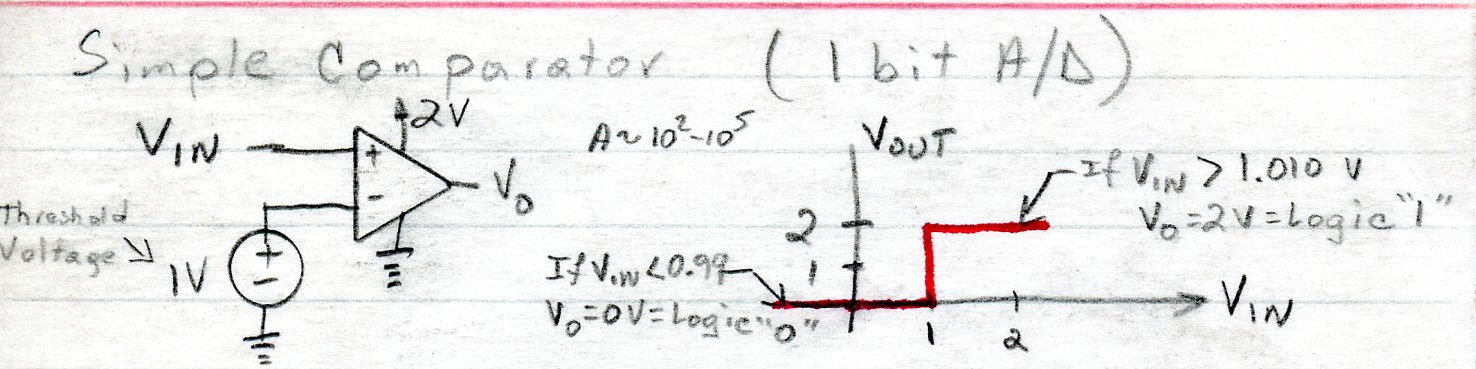 Simple Comparator (1 bit A/D)
2V
VIN
+
-
Vo
Threshold
Voltage
1V
+
-
A~10²-10⁵
VOUT
2
1
If VIN > 1.010 V
Vo=2V=Logic "1"
If VIN<0.99
Vo=0V=Logic "0"
1
2
VIN